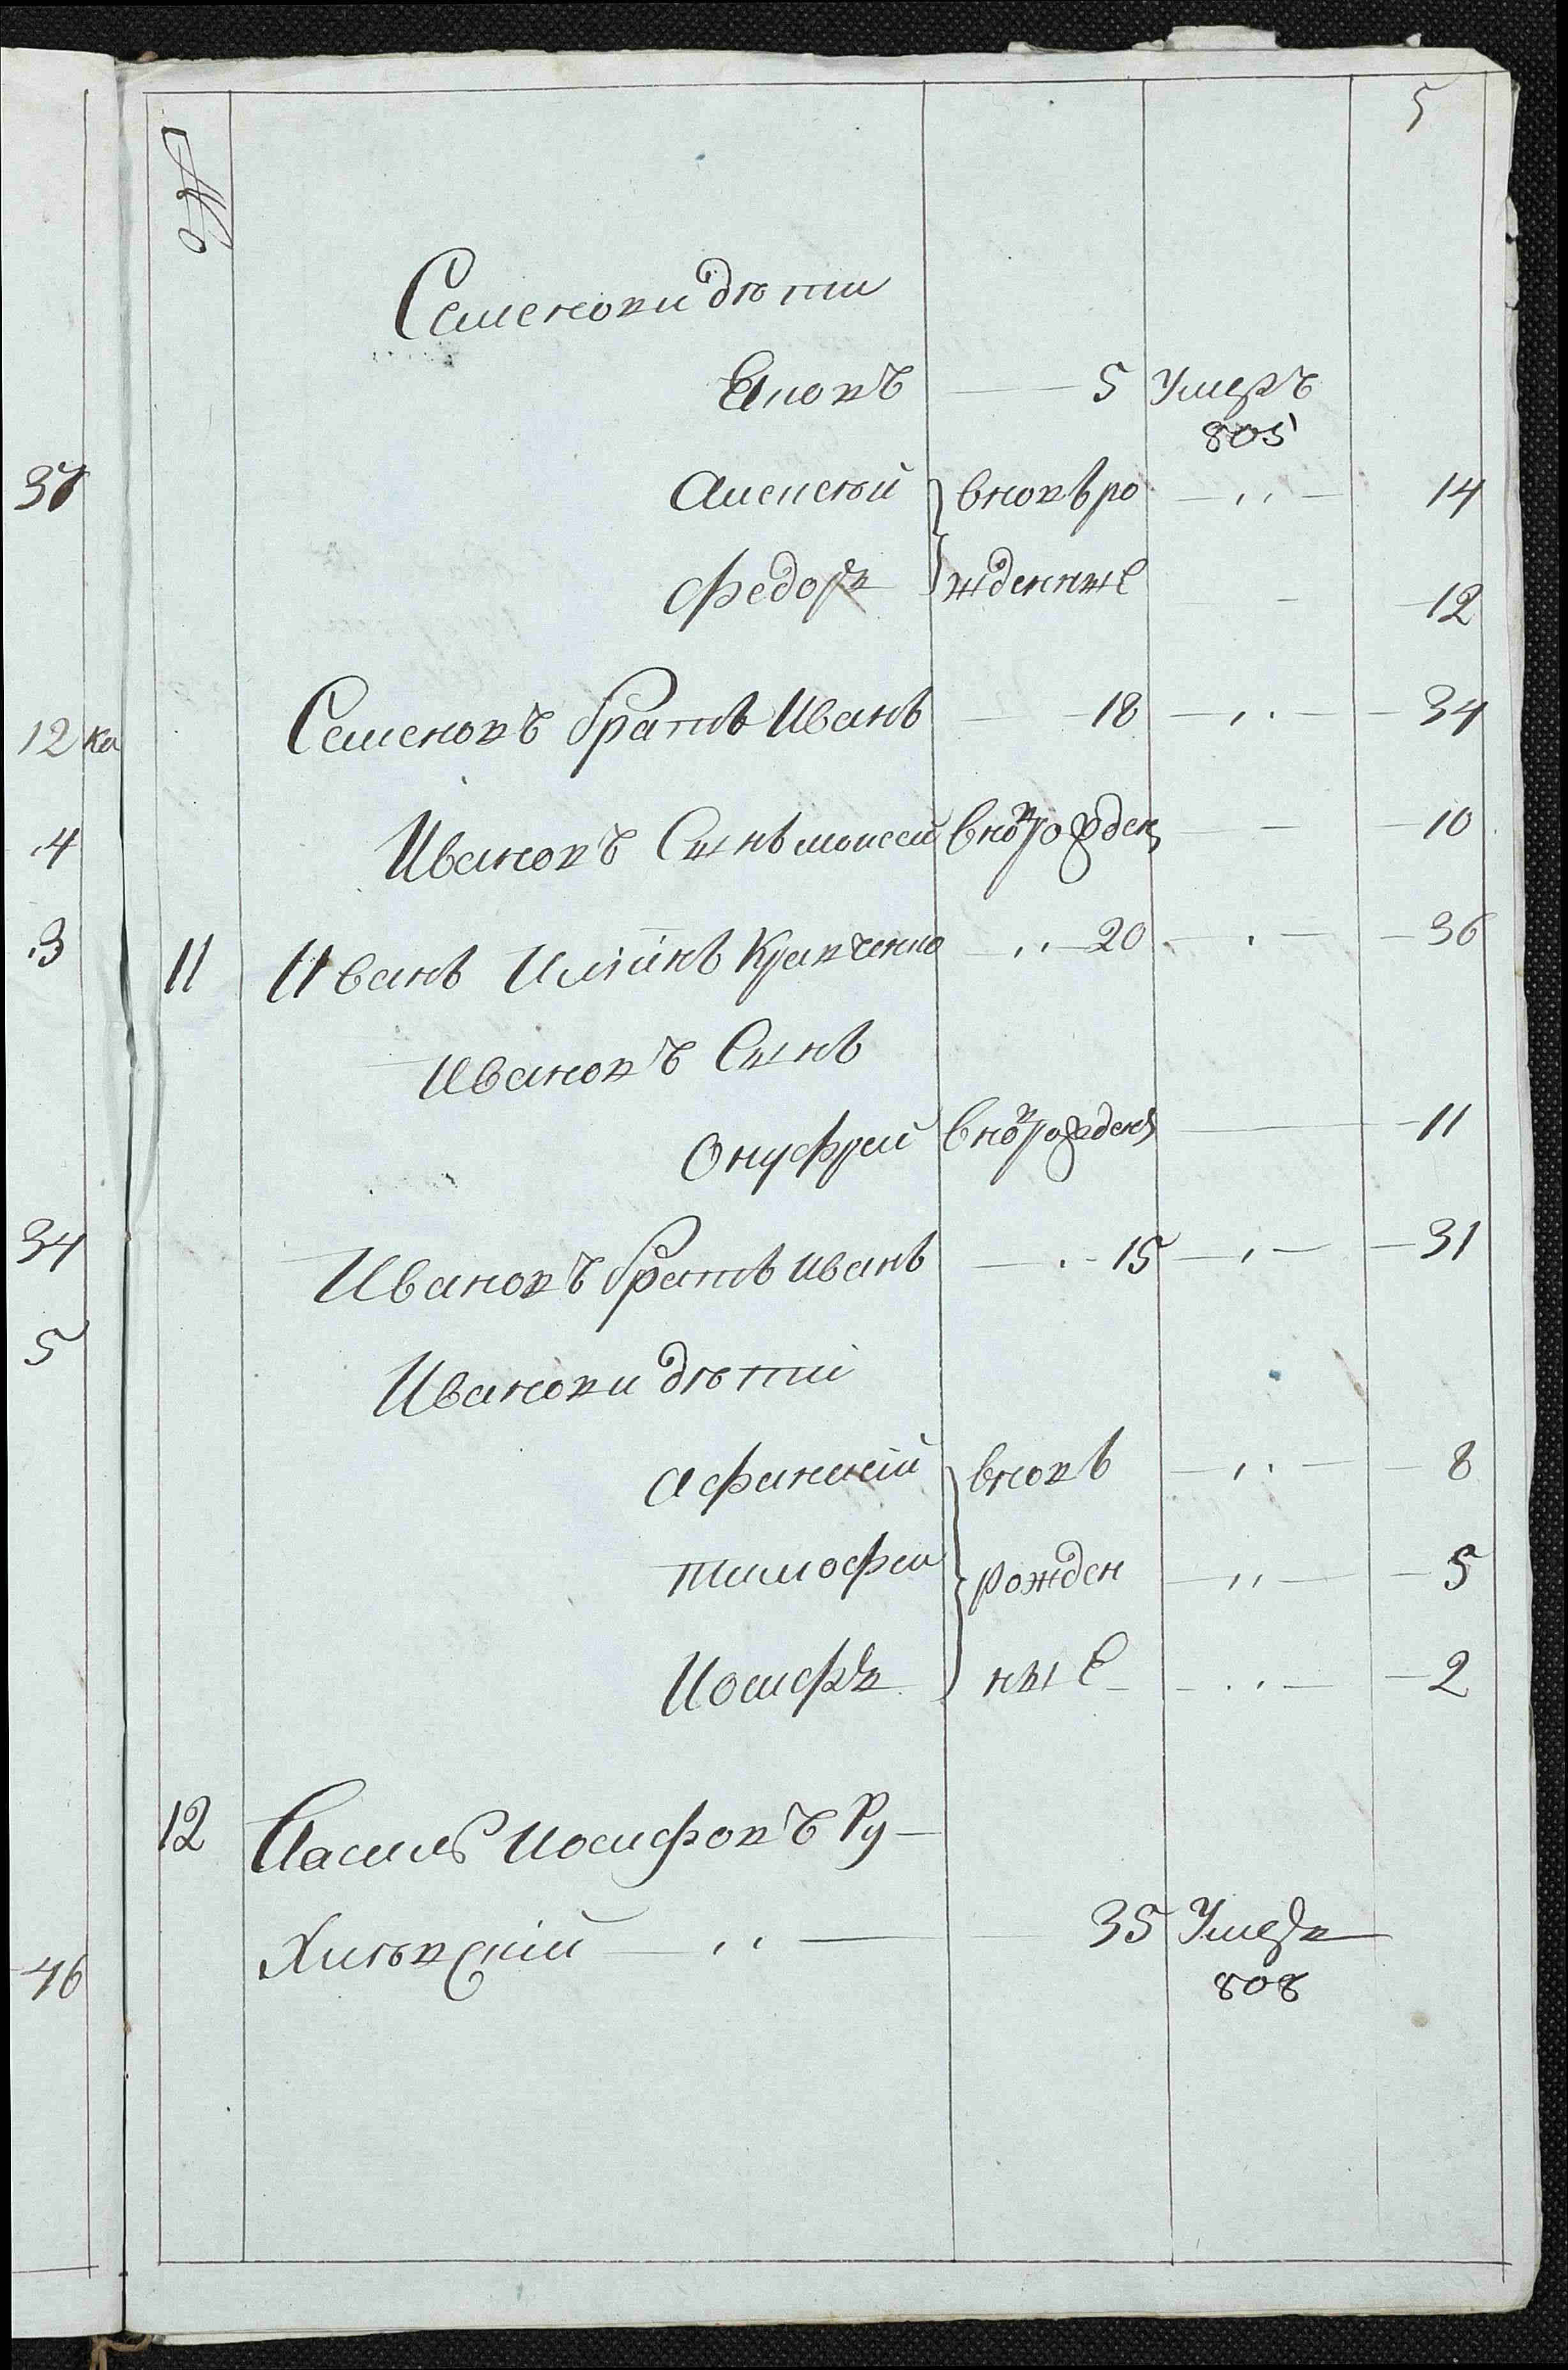 37
12 ка
4
3
34
5
46
5
№
Семеновы дѣти
Яковъ 5 Умеръ
805
Алексѣй вновь ро 14
Федоръ жденные 12
Семеновъ братъ Иванъ 18 34
Ивановъ Сынъ моисей вновь рожден 10
11 Иванъ Илїинъ Кравченко 20 36
Ивановъ Сынъ
Онуфрей вновь рожден 11
Ивановъ братъ иванъ 15 31
Ивановы дѣти
Афанасій вновь 8
тимофей рожден 5
Иосифъ ные 2
12 Василь Иосифовъ Ру-
Хилевскій 35 Умеръ
808